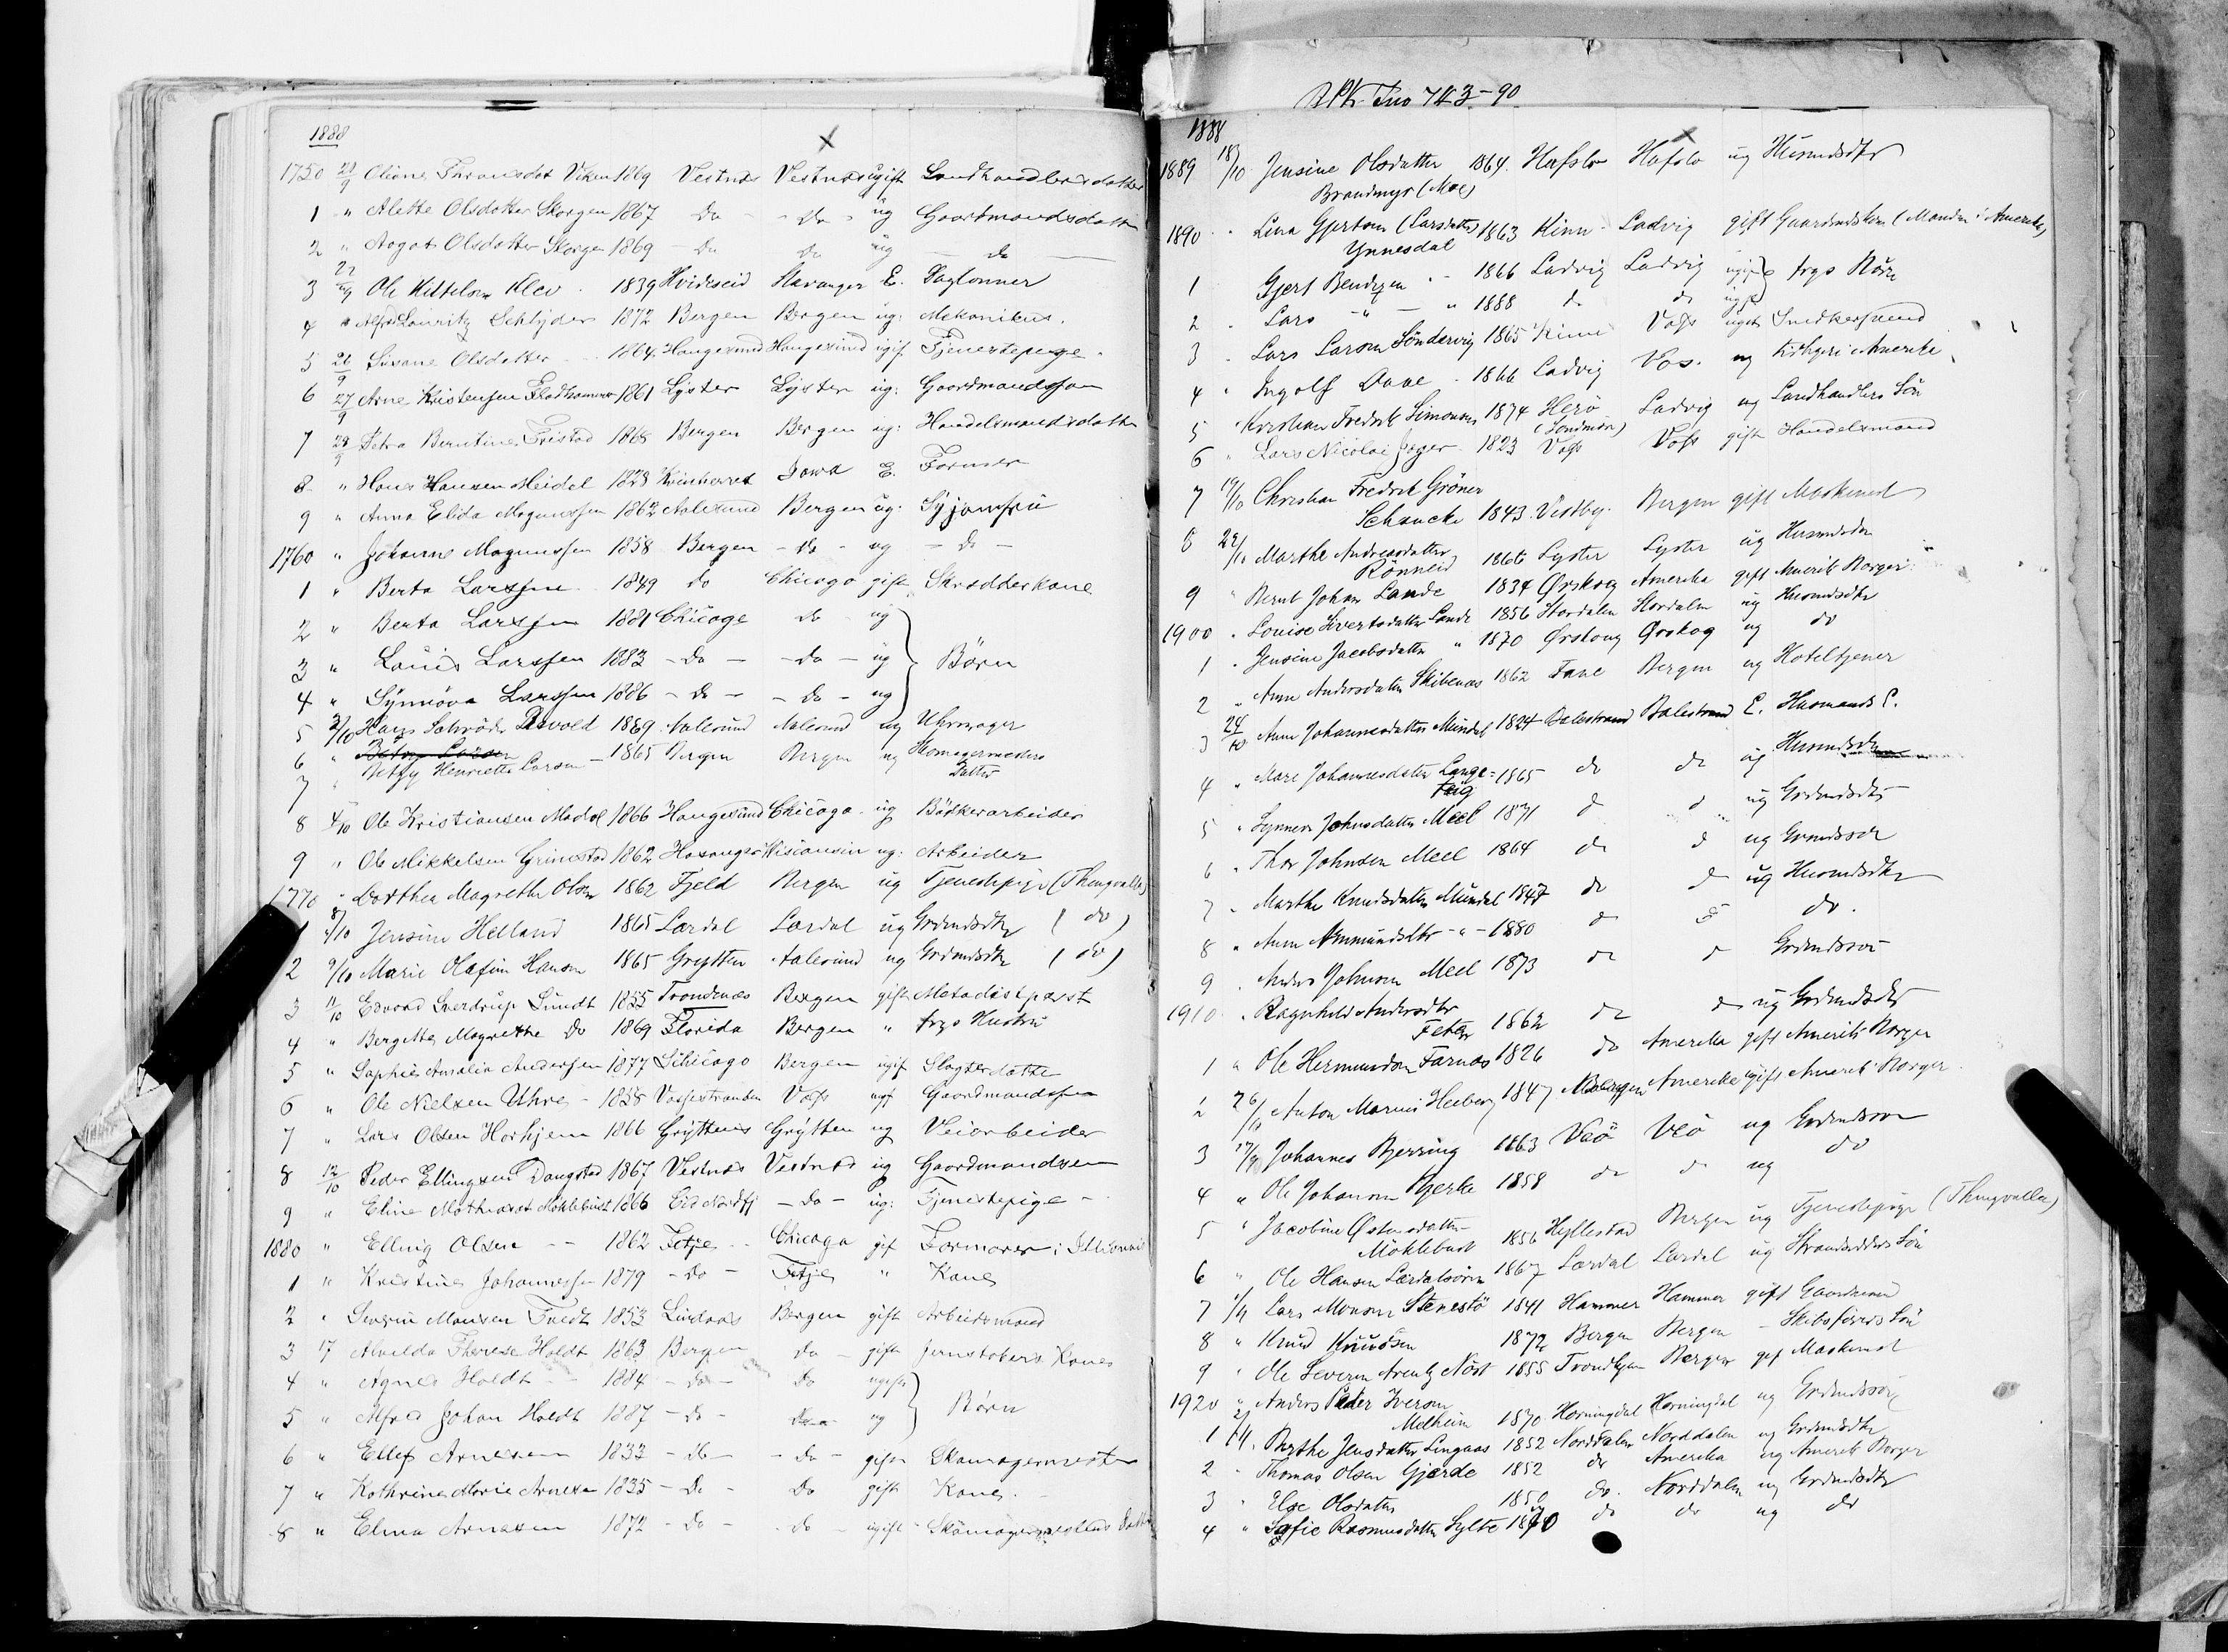 1888
1750 28/9 Oliane Thronsdot Viken 1869 Vestnæs Vestnæs Ugift Landhandlersdatter
1 " Alette Olsdatter Skorgen 1867 Do - Do - ug Gaardmandsdatter
2 " Aagot Olsdatter Skorgen 1869 - Do Do ug - do -
3 Ole Kittelsen Klev 1839 Hvideseid Stavanger E. Daglønner
4 " Alfred Lauritz Schlyder 1872 Bergen Bergen ug: Mekanikus.
5 26/9 Susane Olsdatter 1864 Haugesund Haugesund ugif Tjenestepige
6 27/9 Arne Kristensen Fladhammer 1861 Lyster Lyster ug: Gaardmandssøn
7 28/9 Petra Berntine Fristad 1868 Bergen Bergen ug: Handelsmandsdatter
8 " Hans Hansen Meidel 1828 Kvinherred Iowa E. Farmer
9 " Anna Elida Magnussen 1862 Aalesund Bergen ug: Syjomfru
1760 " Johanne Magnussen 1858 Bergen - do - ug - do -
1 " Berta Larssen 1849 do Chicago gift Skrædderkone
2 " Berta Larssen 1881 Chicago do ug
3 " Louis Larssen 1883 - do - - do - ug Børn
4 " Synnøva Larssen 1886 - do - - do - ug
5 3/10 Hans Schrøder Devold 1869 Aalesund Aalesund ug Uhrmager
6 " Betsy Larsen
7 Betsy Henriette Larsen - 1865 Bergen Bergen ug Skomagermesters Datter
8 4/10 Ole Kristiansen Madol 1866 Haugesund Chicago ug Bødkerarbeider
9 " Ole Mikkelsen Grimstad 1862 Hosanger Wisconsin ug: Arbeider
1770 " Dorthea Magrethe Olsen 1862 Fjeld Bergen ug Tjenestepige (Thingvalla)
8/10 Jensine Helland 1865 Lærdal Lærdal ug Grdmdsdtr (do)
2 9/10 Marie Olafine Hansen 1865 Grytten Aalesund ug Grdmdsdtr (do)
3 11/10 Edvard Sverdrup Sundt 1855 Trondenæs Bergen gift Metodistpræst
4 " Bergitte Magrethe Do 1869 Florida Bergen " frgs Hustru
5 " Sophie Amalia Andersen 1877 Schicago Bergen ugif Slagterdatter
6 " Ole Nielsen Uhre - 1858 Vossestranden Voss ugf Gaardmandssøn
7 " Lars Olsen Horhjem 1866 Gryttens Grytten ug Veiarbeider
8 12/10 Peder Ellingsen Daugstad 1867 Vestnæs Vestnæs ug Gaardmandsen
9 " Eline Mathiasdt Møklebust 1866 Eid Nordfj - Do - ug: Tjenestepige -
1880 " Elling Olsen - - 1862 Fetje Chicago gif Formover i
1 " Kristine Johannessen 1879 - do - Fetje " Kone
2 " Severin Monsen Tvedt 1853 Lindaas Bergen gift Arbeidsmand
3 17 Alvilda Therese Holdt 1863 Bergen do - gift Jernstøbers Kone
4 " Agnes Holdt - - 1884 - do - Do ugift
5 " Alfred Johan Holdt 1887 - do - ug Børn
6 " Ellef Arnesen 1833 - do - - do - gift Skomagermester
7 " Kathrine Marie Arnesen 1835 - Do - Do gift Kone.
8 " Elina Arnesen 1872 - Do - - do ugift Skomagermesters Datter
743-90
1888
1889 18/10 Jensine Olsdatter 1864. Hafslo Hafslo ug Husmdsdtr
Brandmyr (Moe)
1890 " Lina Gjertsen (Larsdatter) 1863 Kinn Ladvig gift Gaardmdskone (Manden i Amerika)
Ynnesdal
1 Gjert Bendixen " 1866 Ladvig Ladvig ugift frgs Børn
2 " Lars - " - " 1888 do do ugift
3 " Lars Larsen Søndervig 1865 Kinn Voss ugift Snedkersvend
4 " Ingolf Daae 1866 Ladvig Vos. ug Amerika
5 Kristian Fredrik Simonsen 1874 Herø (Søndmør) Ladvig ug Landhandlers Søn
6 " Lars Nicolai Jæger 1823 Voss Voss gift Handelsmand
7 19/10 Christian Fredrik Grøner
Schancke 1843. Vestby. Bergen gift Maskinist
8 22/10 Marthe Andreasdatter
Rønneid 1866 Lyster Lyster ug Husmdsdtr
9 " Bernt Johan Lande 1834 Ørskog Amerika gift Amerik Borger
1900 " Louise Sivertsdatter Lande 1856 Stordalen Stordalen ug Husmdsdtr
1 " Jensine Jacobsdatter " 1870 Ørskoug Ørskog ug do
2 " Anne Andersdatter Skibenæs 1862 Fane Bergen ug Hoteltjener
3 24/10 Anne Johannesdatter Mundal 1824 Balestrand Balestrand E. Husmands E.
4 " Mari Johannesdatter Lange= 1865 do do ug Husmdsdtr
Teig
5 " Synnev Johnsdatter Meel 1871 do do ug Grdmdsdtr
6 " Thor Johnsen Meel 1864 do do ug Grmdssøn
7 " Marthe Knudsdatter Mundal 1847 do do ug Husmdsdtr
8 " Anne Ammundsdtr - " - 1880 do do do.
9 " Anders Johnson Meel 1873 do do Grdmdssøn
1910 " Ragnhild Andersdtr
Feten 1862 do do ug Grdmdsdtr
1 " Ole Hermundsen Farnæs 1826 do Amerika gift Amerik Borger
2 26/10 Anton Marius Heiberg 1847 Amerika Gift Amerik Borger
3 Johannes Bjerring 1863 Veø Veø ug Grdmdssøn
4 " Ole Johansen Gjerke 1858 do do ug do
5 " Jacobine Østensdatter
Møklebust 1856 Hyllestad Bergen ug Tjenestepige (Thingvalla)
6 " Ole Hansen Lærdalsøren 1867 Lærdal Lærdal ug Strandsidders Søn
7 1/11 Lars Monsen Stenestø 1841 Hammer Hammer gift Gaardmand
8 " Knud Knudsen 1872 Bergen Bergen - Skibsførers Søn
9 " Ole Severin Arentz Nøst 1855 Trondhjem Bergen gif Maskinist
1920 " Anders Peder Iversen
Melheim 1870 Horningdal Horningdal ug Grdmdssøn
1 2/11. Berthe Jensdatter Lingaas 1852 Norddalen Norddalen ug Grdmdsdtr
2 " Thomas Olsen Gjærde 1852 do Amerika ug Amerik Borger
3 " Else Olsdatter 1850 do. Norddalen ug Grdmdsdtr
4 " Sofie Rasmusdatter Sylte 1870 do do ug do